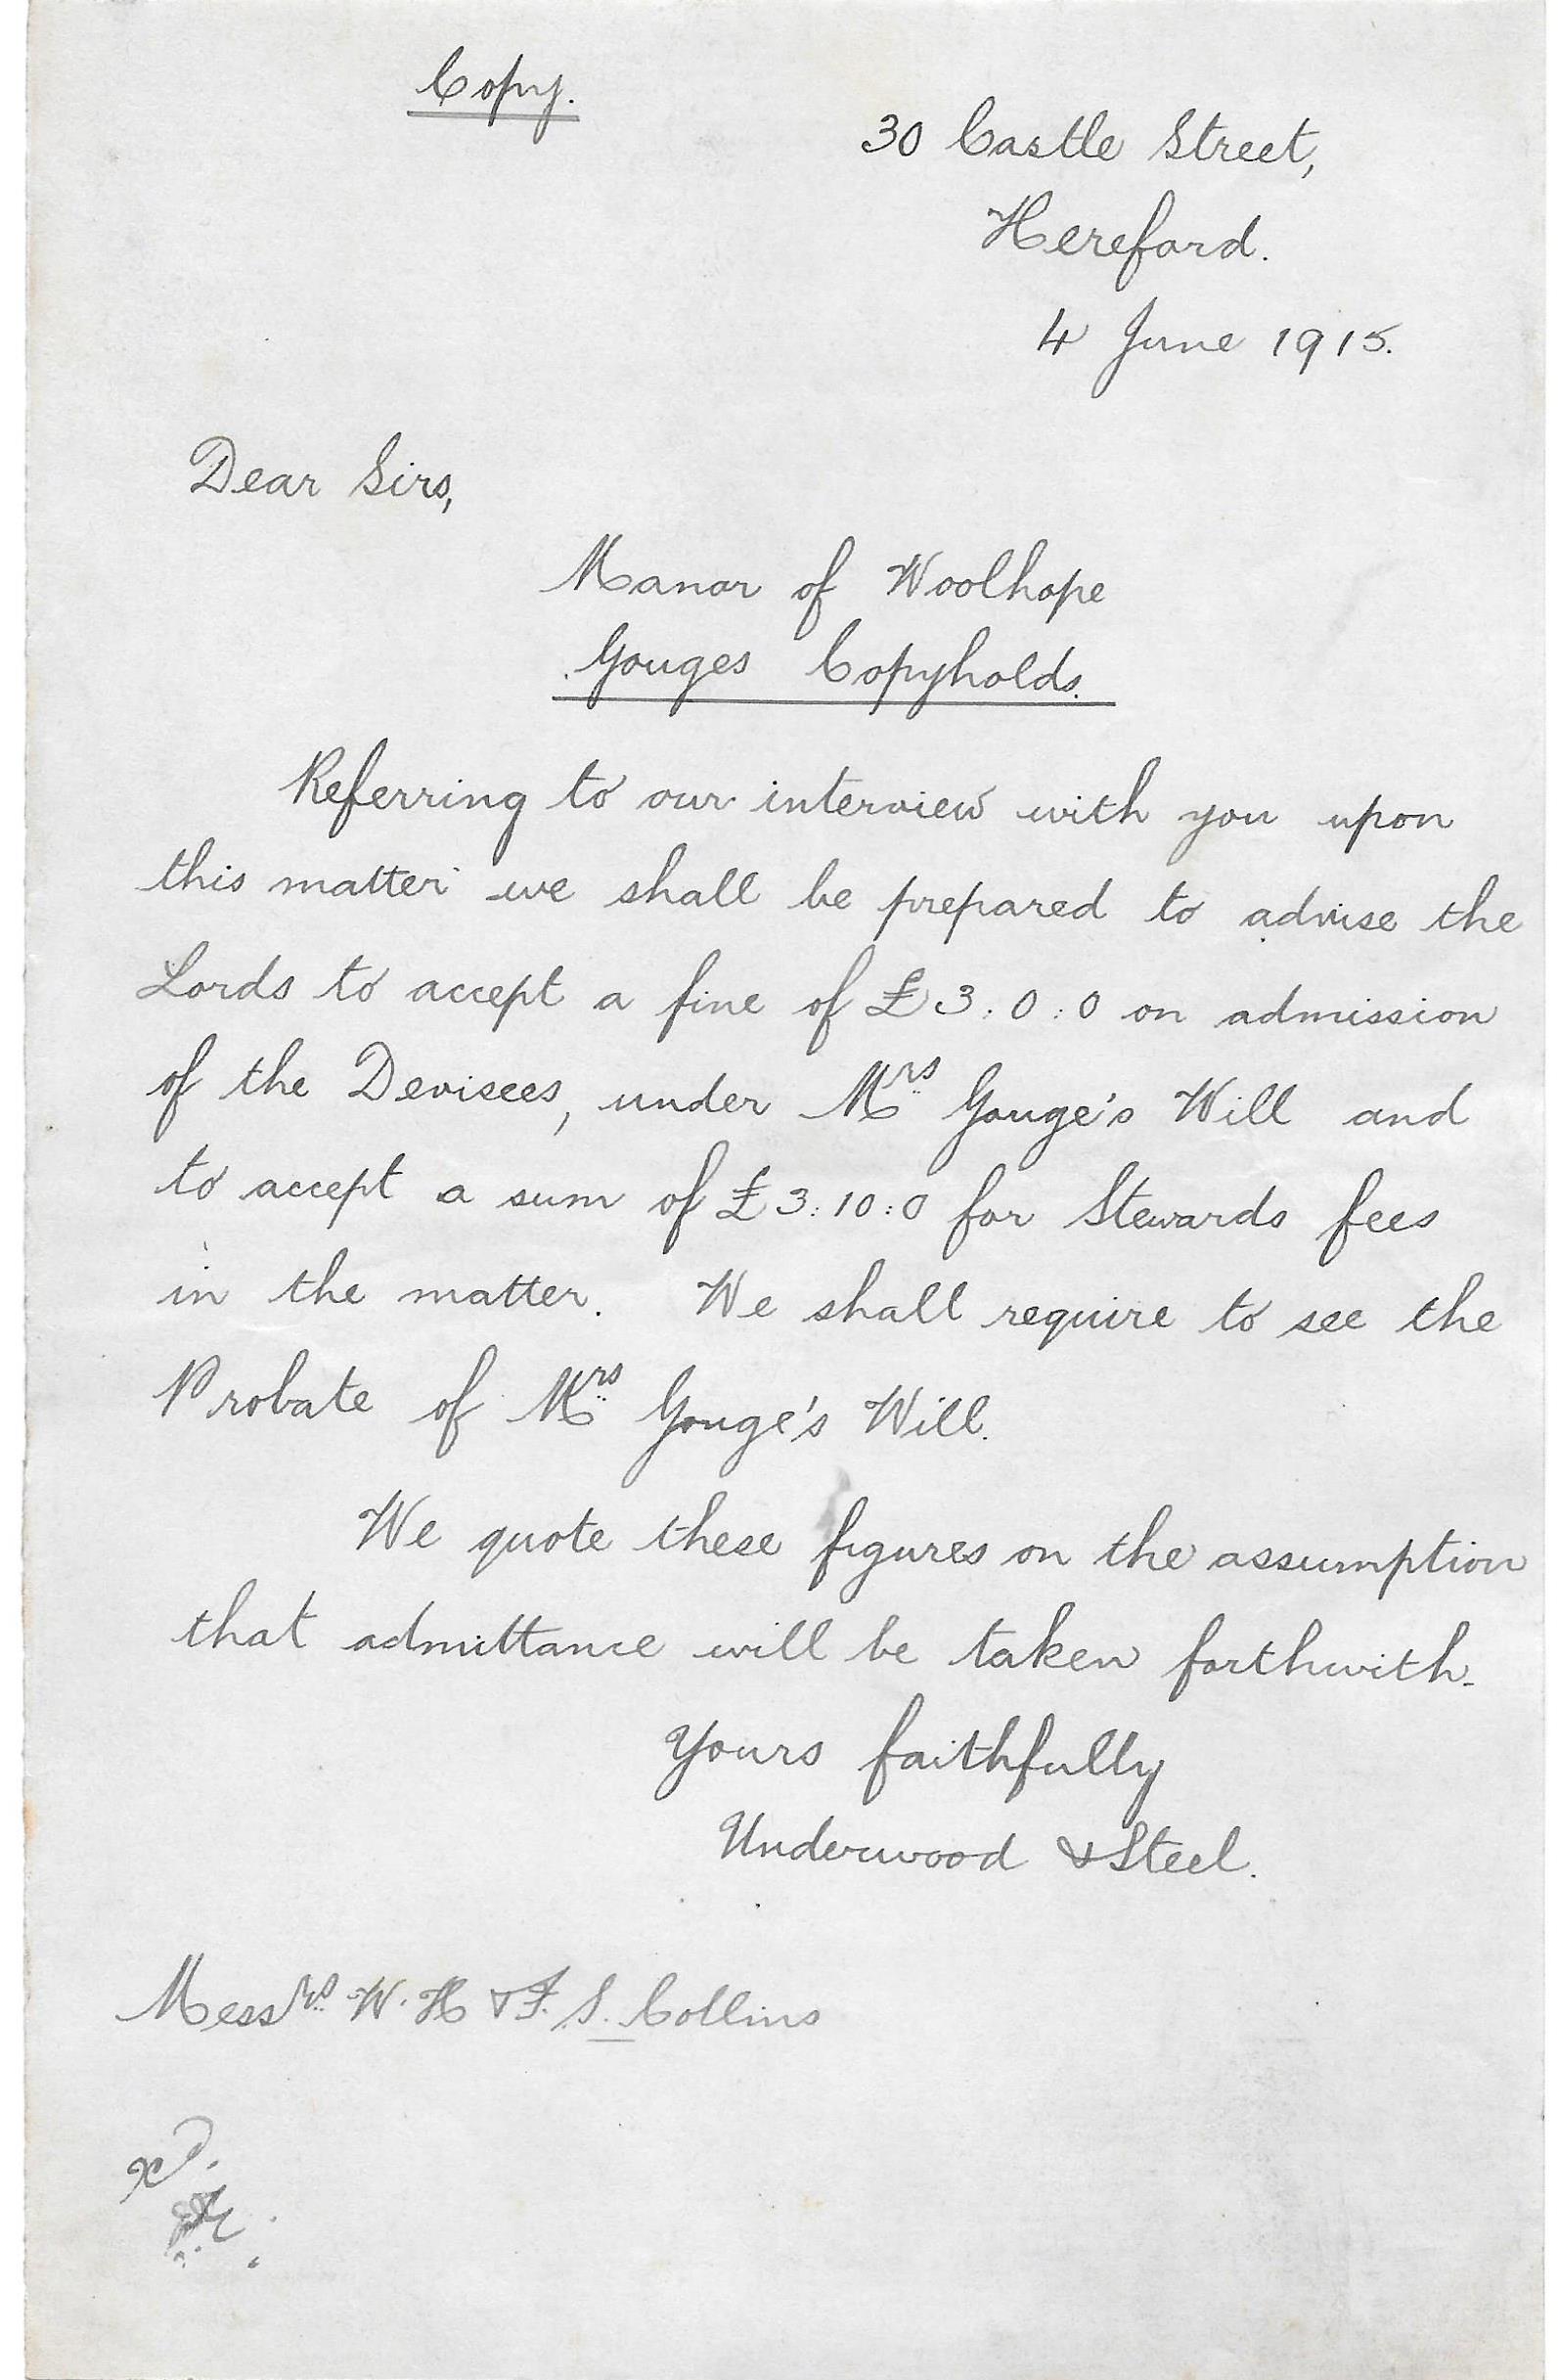 Copy.
30 Castle Street,
Hereford.
4 June 1915.
Dear Sirs,
Manor of Woolhope
Gouges Copyholds.
Referring to our interview with you upon
this matter we shall be prepared to advise the
Lords to accept a fine of £3:0:0 on admission
of the Devisees, under Mrs Gouge's Will and
to accept a sum of £3:10:0 for Stewards fees
in the matter. We shall require to see the
Probate of Mrs Gouge's Will.
We quote these figures on the assumption
that admittance will be taken forthwith.
Yours faithfully
Underwood & Steel.
Messrs W. H & F. S. Collins